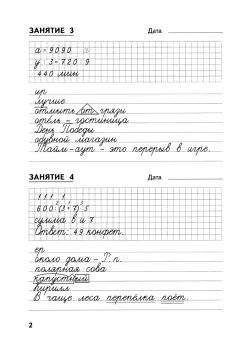 ЗАНЯТИЕ 3 Дата
а = 9090 а
у : 3 = 720 : 9
440 мин
ир
лучше
отмыть от грязи
отель – гостиница
День Победы
обувной магазин
Тайм-аут – это перерыв в игре.
ЗАНЯТИЕ 4 Дата
1 1 1 1
600 : (3 + 7) · 5
сумма 8 и 7
Ответ: 49 конфет.
ер
около дома – Р. п.
полярная сова
капустный
Кирилл
В чаще леса перепёлка поёт.
2